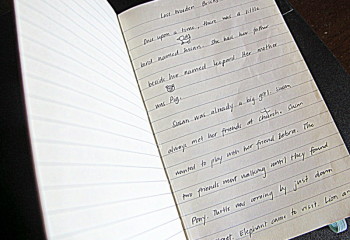 Lost Wooden
Once upon a time, there was a little
bird named Susan. She has her father
beside her named leopard. Her mother
was Pig.
Susan was already a big girl. Susan
always met her friends at church. Susan
wanted to play with her friend Zebra. The
two friends went walking until they found
Pony. Turtle was coming by just down
Elephant came to visit. Lion